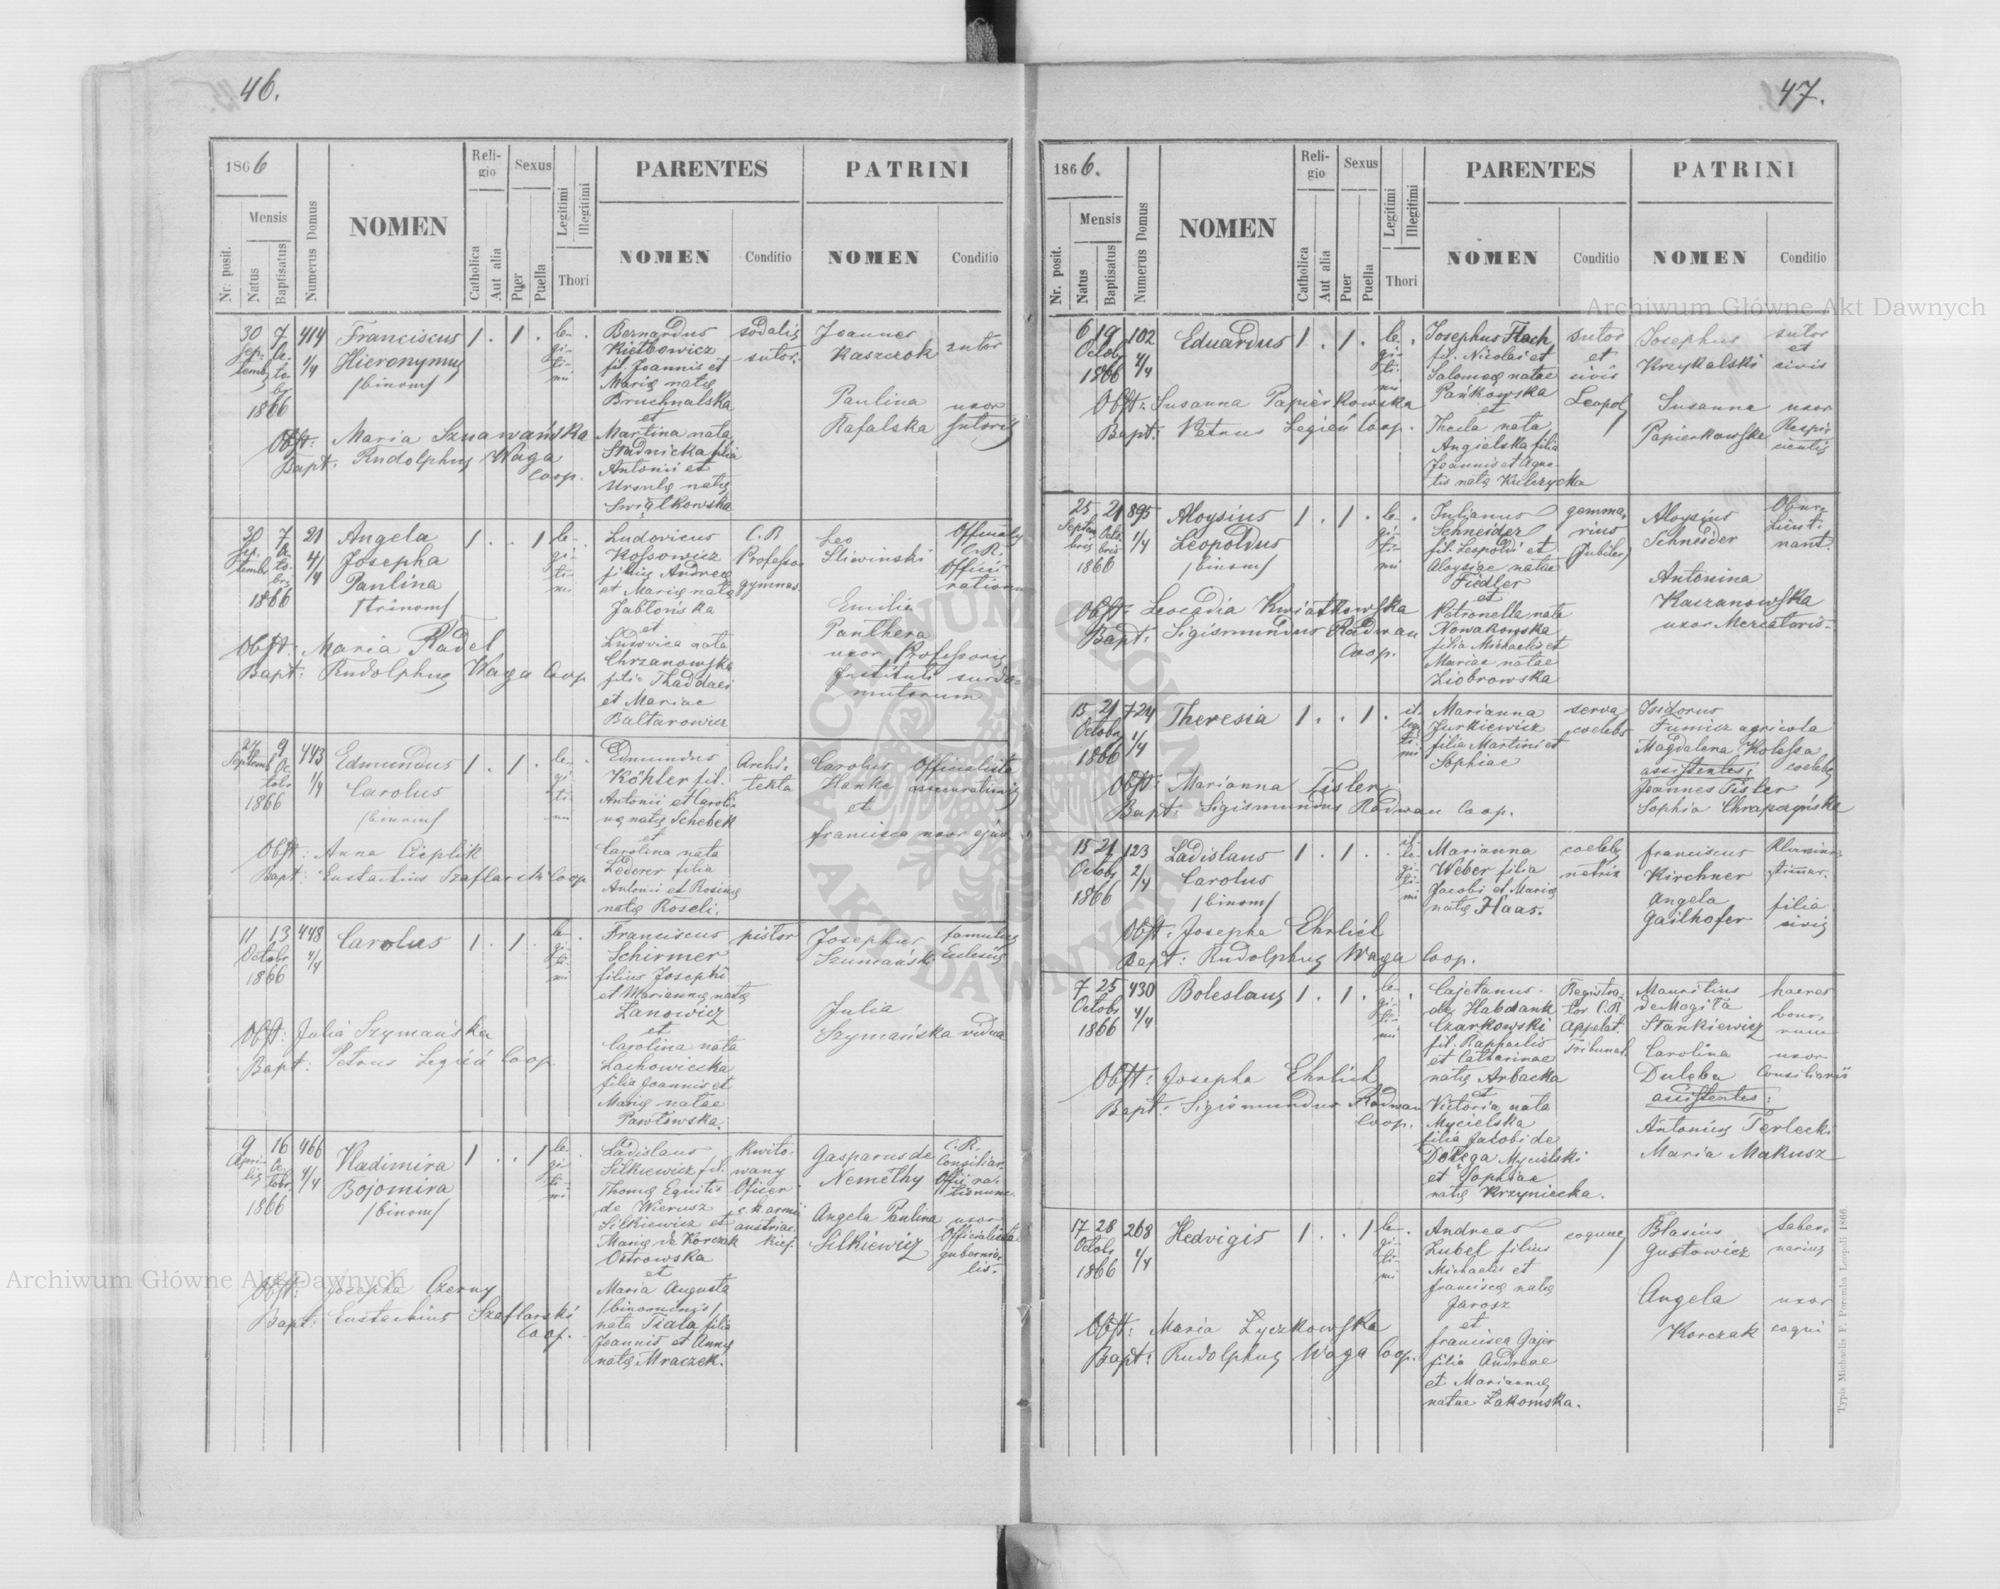 46.
1866
Mensis
Nr. posit.
Natus
Baptisatus
Numerus Domus
NOMEN
Religio
Catholica
Aut alia
Sexus
Puer
Puella
Legitimi
Illegitimi
Thori
PARENTES
NOMEN
Conditio
PATRINI
NOMEN
Conditio
30 7 414
1/4
1866
Franciscus
Hieronymus
/binom/
1 . 1 .
legitimi
Bernardus
Kiełbowicz
fil. Joannis et
Marię natę
Bruchnalska
et
Martina nata
Stadnicka filia
Antonii et
Ursulę natę
Swiątkowska
sodalis
sutor.
Joannes
Kaszczok
sutor
Paulina
Rafalska
uxor
sutoris
Obst: Maria Sznawańska
Bapt: Rudolphus Waga
Coop.
30 7 21
4/4
1866
Angela
Josepha
Paulina
/trinom/
1 . . 1
legitimi
Ludovicus
Kossowicz
filius Andreę
et Marię natę
Jabłońska
et
Ludovica nata
Chrzanowska
filia Thaddaei
et Mariae
Baltarowicz
C. R.
Professor
gymnas.
Leo
Sliwinski
C. R.
Officii
rationum
Emilia
Panthera
uxor Professoris
Instituti surdo-
mutorum
Obst: Maria Radel
Bapt: Rudolphus Waga Coop
27 9 443
1/4
1866
Edmundus
Carolus
/binom/
1 . 1 .
Edmundus
Köhler fil.
Antonii et Caroli-
nę natę Schebek
et
Carolina nata
Lederer filia
Antonii et Rosinę
natę Roseli.
Archi-
tekta
Carolus
Hanke
et
Francisca uxor ejus
Officialista
assecurationis
Obst: Anna Cieplik
Bapt: Eustachius Szaflarski Coop
11 13 448
4/4
Octobr
1866
Carolus
1 . 1 .
legitimi
Franciscus
Schirmer
filius Josephi
et Mariannę natę
Łanowicz
et
Carolina nata
Lachowiecka
filia Joannis et
Marię natae
Pawłowska.
pistor
Josephus
Szumański
famulus
Ecclesię
Julia
Szymańska vidua
Obst: Julia Szymańska
Bapt: Petrus Legień Coop
9 16 466
4/4
1866
Vladimira
Bojomira
/binom/
1 . . 1
legitimi
Ladislaus
Silkiewicz fil.
Thomę Equitis
de Wierusz
Silkiewicz et
Marię de Korczak
Ostrowska
et
Maria Augusta
/binomenis/
nata Fiala filia
Joannis et Annę
natę Mraczek.
Kwito-
wany
Oficer
c. k armii
austriac
kiej.
Gasparus de
Nemethy
C. R.
Consiliar.
Offic. ra-
tionum
Angela Paulina
Silkiewicz
uxor
Officialista
gubernia-
lis.
Obst: Josepha Czerny
Bapt: Eustachius Szaflarski
Coop.
47.
1866.
Mensis
Nr. posit.
Natus
Baptisatus
Numerus Domus
NOMEN
Religio
Catholica
Aut alia
Sexus
Puer
Puella
Legitimi
Illegitimi
Thori
PARENTES
NOMEN
Conditio
PATRINI
NOMEN
Conditio
6 19 102
Octob 4/4
1866
Eduardus
1 . 1 .
legitimi
Josephus Flach
fil. Nicolai et
Salomeę natae
Pańkowska
et
Thecla nata
Angielska filia
Joannis et Agne-
tis natę Kulczycka
sutor
et
civis
Leopol
Josephus
Krzykalski
sutor
et
civis
Susanna
Papierkowska
uxor
Obst: Susanna Papierkowska
Bapt: Petrus Legień Coop.
25 21 895
1/4
1866
Aloysius
Leopoldus
/binom/
1 . 1 .
legitimi
Julianus
Schneider
fil. Leopoldi et
Aloysiae natae
Fiedler
et
Petronella nata
Nowakowska
filia Michaelis et
Mariae natae
Ziobrowska
gemma-
rius
/Jubiler/
Aloysius
Schneider
Antonina
Kaczanowska
uxor Mercatoris
Obst: Leocadia Kwiatkowska
Bapt: Sigismundus Radwan
Coop.
15 21 724
Octob 1/4
1866
Theresia
1 . . 1
illegitimi
Marianna
Jurkiewicz
filia Martini et
Sophiae
serva
coelebs
Isidorus
Fumicz agricola
Magdalena Kolessa
coelebs
assistentes:
Joannes Tisler
Sophia Chrapczyńska
Obst: Marianna Tisler
Bapt: Sigismundus Radwan Coop.
15 21 123
Octob 2/4
1866
Ladislaus
Carolus
/binom/
1 . 1 .
illegitimi
Marianna
Weber filia
Jacobi et Marię
natę Haas.
coelebs
netrix
Franciscus
Kirchner
Angela
Gailhofer
filia
civis
Obst: Josepha Ehrlich
Bapt: Rudolphus Waga Coop.
7 25 430
Octob 4/4
1866
Boleslaus
1 . 1 .
legitimi
Cajetanus
de Habdank
Czarkowski
fil. Raphaelis
et Catharinae
natę Arbacka
et
Victoria nata
Mycielska
filia Jacobi de
Dołęga Mycielski
et Sophiae
natę Krzyniecka.
Registra-
tor C.R.
Appelat.
Tribunal.
Mauritius
de Mogiła
Stankiewicz
haeres
bono-
rum
Carolina
Dulęba
uxor
Consiliarii
assistentes:
Antonius Terlecki
Maria Makusz
Obst: Josepha Ehrlich
Bapt: Sigismundus Radwan
Coop.
17 28 268
Octob 1/4
1866
Hedvigis
1 . . 1
legitimi
Andreas
Zubel filius
Michaelis et
Franciscę natę
Jarosz
et
Francisca Gajer
filia Andreae
et Mariannę
natae Łakomska.
coquus
Blasius
Gustowicz
taber-
narius
Angela
Korczak
uxor
coqui
Obst: Maria Łyczkowska
Bapt: Rudolphus Waga Coop.
Typis Michaelis F. Poremba Leopoli 1866.
Archiwum Główne Akt Dawnych
Archiwum Główne Akt Dawnych
ARCHIWUM GŁÓWNE AKT DAWNYCH